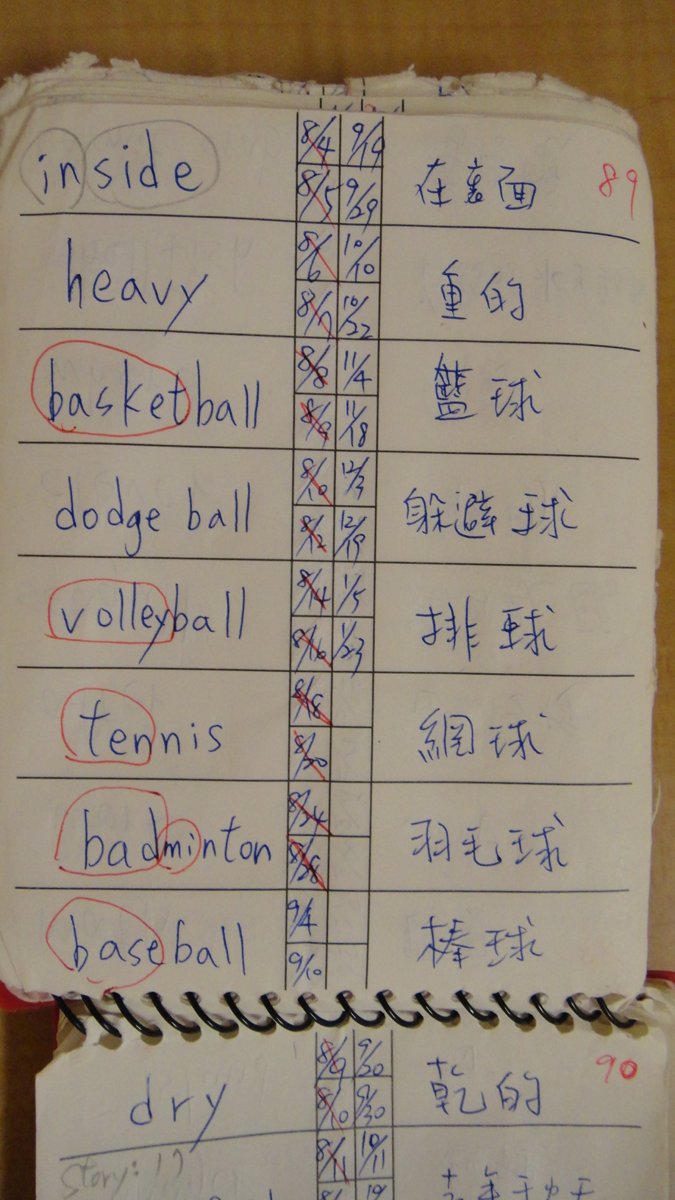 inside 8/4 9/19 在裏面 89
8/5 9/29
heavy 8/6 10/10 重的
8/7 10/22
basketball 8/8 11/4 籃球
8/9 11/18
dodge ball 8/10 12/3 躲避球
8/12 12/19
volleyball 8/14 1/5 排球
8/16 1/23
tennis 8/18 網球
8/20
badminton 8/24 羽毛球
8/28
baseball 9/4 棒球
9/10
dry 8/9 9/20 乾的 90
8/10 9/30
story: 17 8/11 10/11